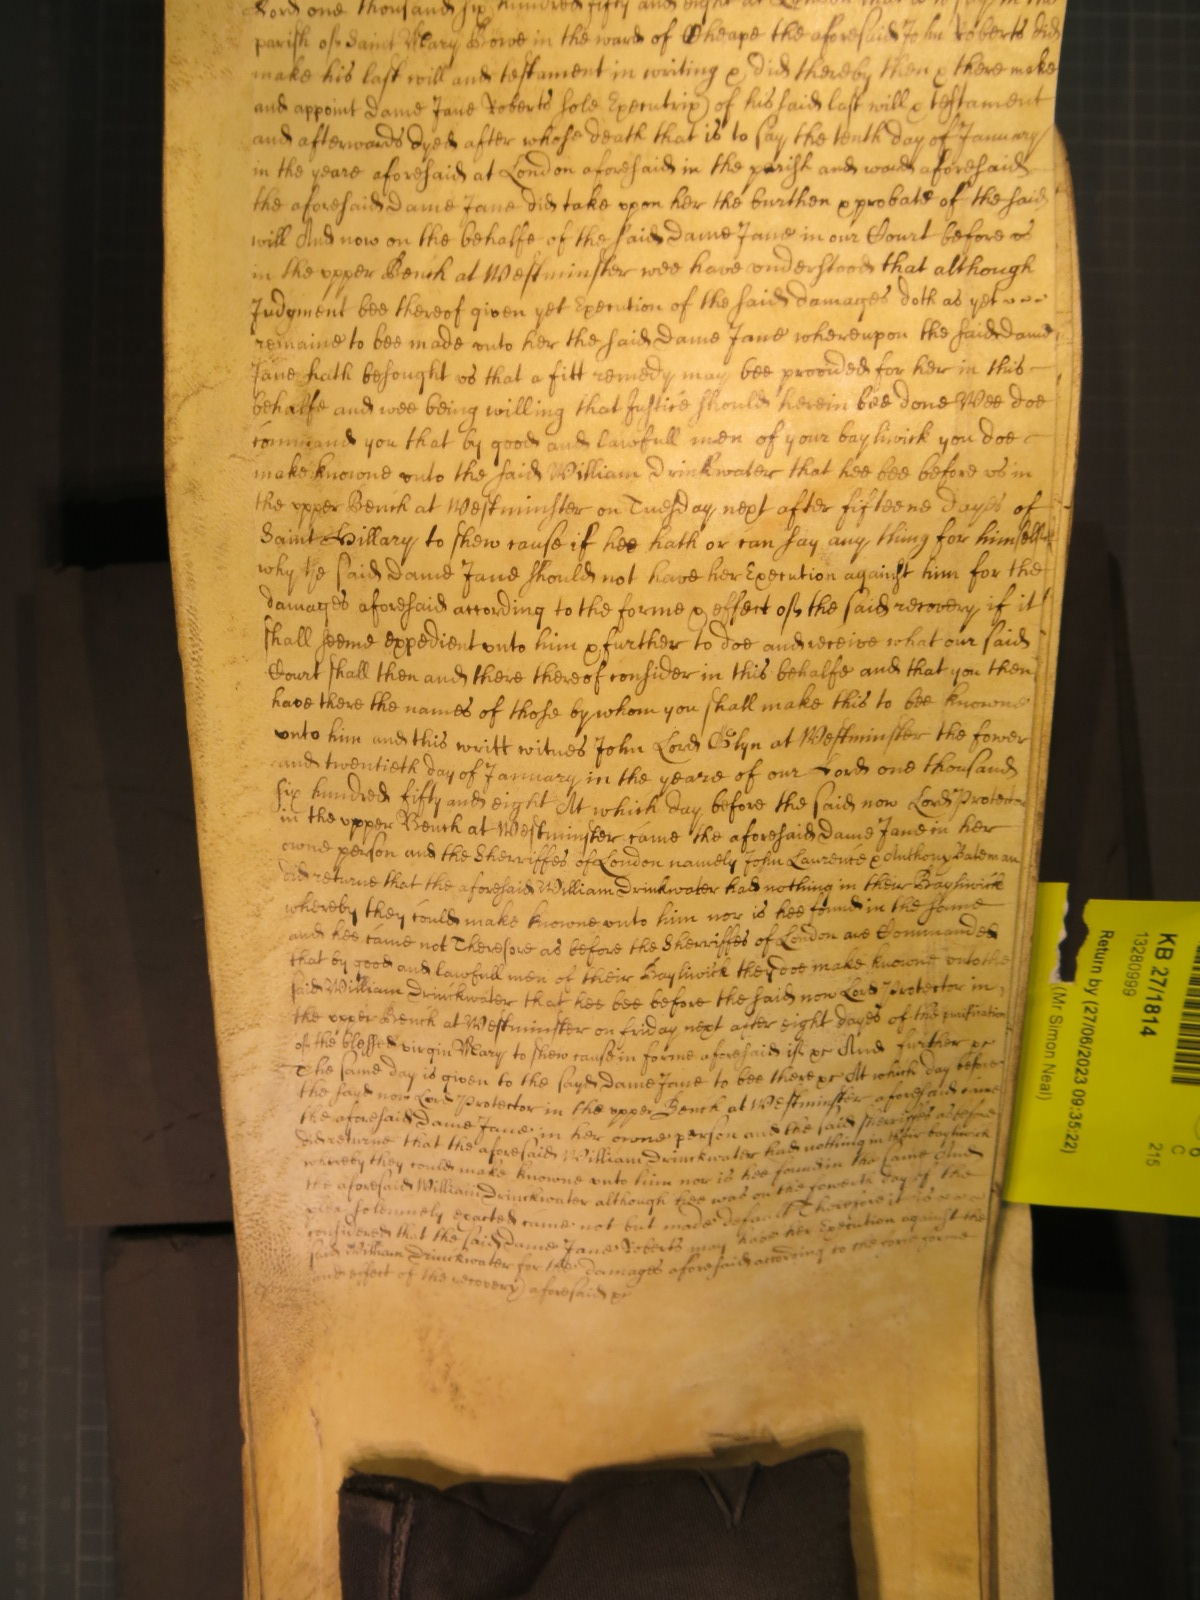 Lord one thousand six hundred fifty and eight at London that is to say in the
parish of Saint Mary Bowe in the ward of Cheape the aforesaid John Roberts did
make his last will and testament in writing & did thereby then & there make
and appoint Dame Jane Roberts sole Executrix of his said last will & testament
and afterwards dyed after whose death that is to say the tenth day of January
in the yeare aforesaid at London aforesaid in the parish and ward aforesaid
the aforesaid Dame Jane did take upon her the burthen & probate of the said
will And now on the behalfe of the said Dame Jane in our Court before us
in the upper Bench at Westminster wee have understood that although
Judgment bee thereof given yet Execution of the said damages doth as yet
remaine to bee made unto her the said Dame Jane whereupon the said Dame
Jane hath besought us that a fitt remedy may bee provided for her in this
behalfe and wee being willing that Justice should herein bee done Wee doe
command you that by good and lawfull men of your bayliwick you doe
make knowne unto the said William Drinkwater that hee bee before us in
the upper Bench at Westminster on Tuesday next after fifteene dayes of
Saint Hillary to shew cause if hee hath or can say any thing for himselfe
why the said Dame Jane should not have her Execution against him for the
damages aforesaid according to the forme & effect of the said recovery if it
shall seeme expedient unto him & further to doe and receive what our said
Court shall then and there thereof consider in this behalfe and that you then
have there the names of those by whom you shall make this to bee knowne
unto him and this writt witnes John Lord Glyn at Westminster the fower
and twentieth day of January in the yeare of our Lord one thousand
six hundred fifty and eight At which day before the said now Lord Protector
in the upper Bench at Westminster came the aforesaid Dame Jane in her
owne person and the Sherriffes of London namely John Laurence & Anthony Bateman
did returne that the aforesaid William Drinckwater had nothing in their Bayliwick
whereby they could make knowne unto him nor is hee found in the same
and hee came not Therefore as before the Sherriffes of London are Commanded
that by good and lawfull men of their Bayliwick they doe make knowne unto the
said William Drinckwater that hee bee before the said now Lord Protector in
the upper Bench at Westminster on friday next after eight dayes of the purification
of the blessed virgin Mary to shew cause in forme aforesaid if &c And further &c
The same day is given to the sayd Dame Jane to bee there &c At which day before
the sayd now Lord Protector in the upper Bench at Westminster aforesaid came
the aforesaid Dame Jane in her owne person and the said Sherriffes as before
did returne that the aforesaid William Drinckwater had nothing in their bayliwick
whereby they could make knowne unto him nor is hee found in the same And
the aforesaid William Drinckwater although hee was on the fowerth day of the
plea solemnely exacted came not but made default Therefore it is
considered that the said Dame Jane Roberts may have her Execution against the
said William Drinckwater for the damages aforesaid according to the forme
and effect of the recovery aforesaid &c
KB 27/1814
13280999
Return by (27/06/2023 09:35:22)
(Mr Simon Neal)
C
215